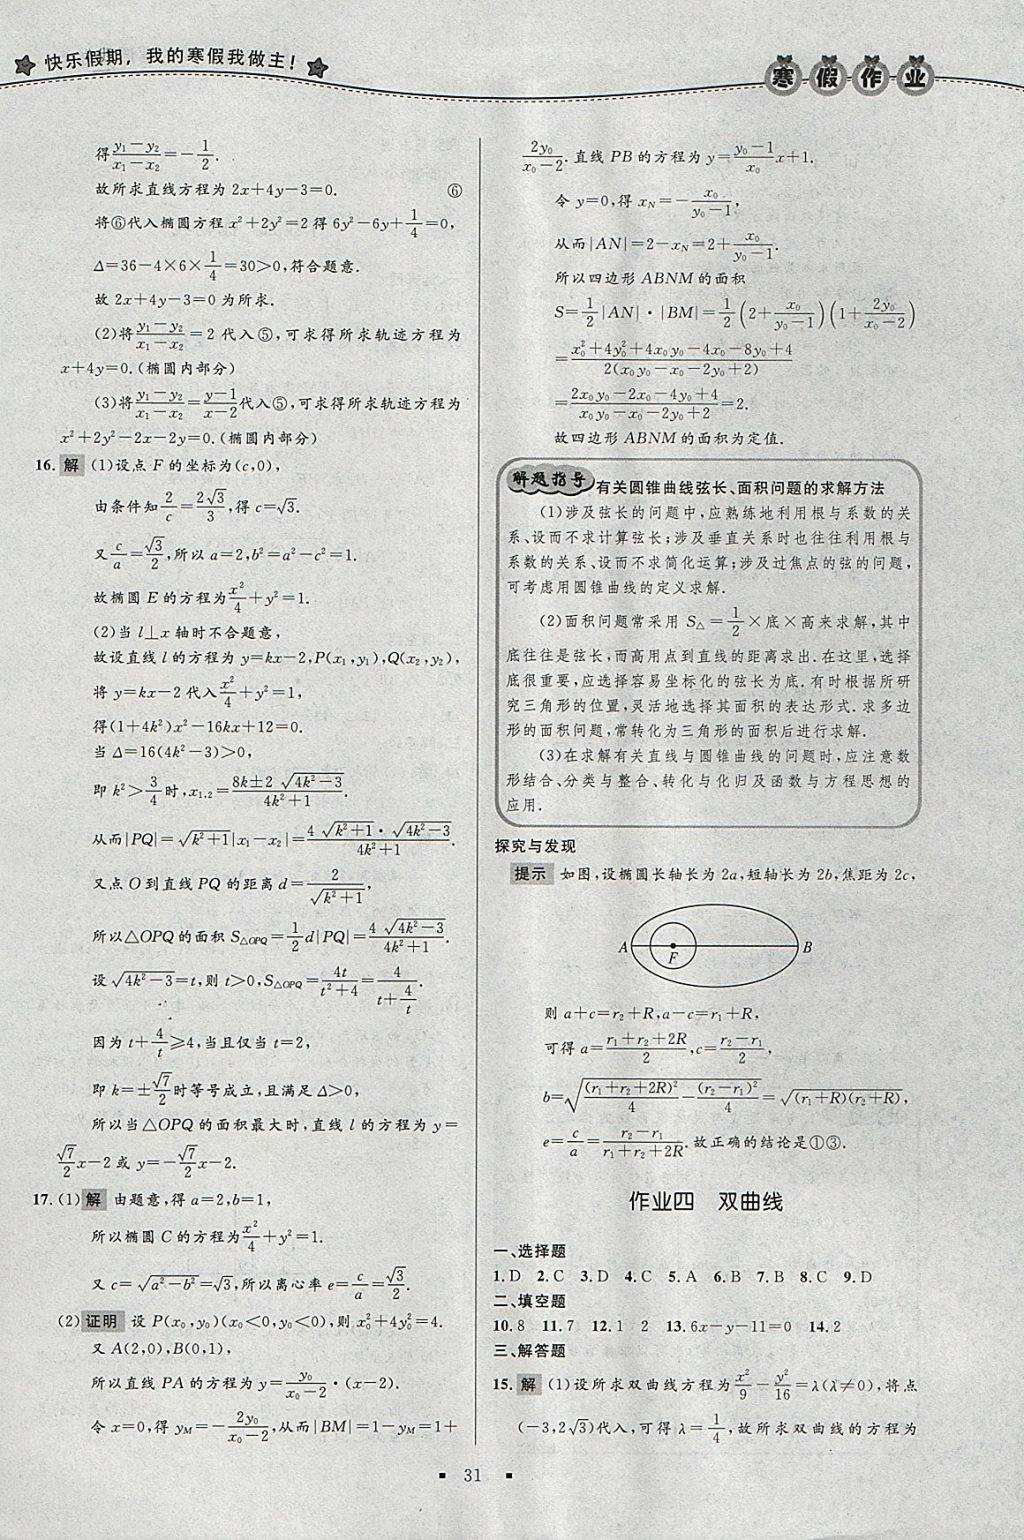 快乐假期，我的寒假我做主！
寒假作业
得\frac{y₁-y₂}{x₁-x₂}=-\frac{1}{2}.
故所求直线方程为 2x+4y-3=0. ⑥
将⑥代入椭圆方程 x²+2y²=2 得 6y²-6y+\frac{1}{4}=0,
Δ=36-4×6×\frac{1}{4}=30>0,符合题意.
故 2x+4y-3=0 为所求.
(2)将\frac{y₁-y₂}{x₁-x₂}=2 代入⑤,可求得所求轨迹方程为
x+4y=0.(椭圆内部分)
(3)将\frac{y₁-y₂}{x₁-x₂}=\frac{y-1}{x-2}代入⑤,可求得所求轨迹方程为
x²+2y²-2x-2y=0.(椭圆内部分)
16. 解 (1)设点 F 的坐标为(c,0),
由条件知\frac{2}{c}=\frac{2√3}{3},得 c=√3.
又\frac{c}{a}=\frac{√3}{2},所以 a=2,b²=a²-c²=1.
故椭圆 E 的方程为\frac{x²}{4}+y²=1.
(2)当 l⊥x 轴时不合题意,
故设直线 l 的方程为 y=kx-2,P(x₁,y₁),Q(x₂,y₂),
将 y=kx-2 代入\frac{x²}{4}+y²=1,
得(1+4k²)x²-16kx+12=0.
当 Δ=16(4k²-3)>0,
即 k²>\frac{3}{4}时,x₁.₂=\frac{8k±2√(4k²-3)}{4k²+1}.
从而|PQ|=√(k²+1)|x₁-x₂|=\frac{4√(k²+1)·√(4k²-3)}{4k²+1}.
又点 O 到直线 PQ 的距离 d=\frac{2}{√(k²+1)},
所以△OPQ 的面积 S△OPQ=\frac{1}{2}d|PQ|=\frac{4√(4k²-3)}{4k²+1}.
设√(4k²-3)=t,则 t>0,S△OPQ=\frac{4t}{t²+4}=\frac{4}{t+\frac{4}{t}}.
因为 t+\frac{4}{t}≥4,当且仅当 t=2,
即 k=±\frac{√7}{2}时等号成立,且满足 Δ>0,
所以当△OPQ 的面积最大时,直线 l 的方程为 y=
\frac{√7}{2}x-2 或 y=-\frac{√7}{2}x-2.
17.(1) 解 由题意,得 a=2,b=1,
所以椭圆 C 的方程为\frac{x²}{4}+y²=1.
又 c=√(a²-b²)=√3,所以离心率 e=\frac{c}{a}=\frac{√3}{2}.
(2) 证明 设 P(x₀,y₀)(x₀<0,y₀<0),则 x₀²+4y₀²=4.
又 A(2,0),B(0,1),
所以直线 PA 的方程为 y=\frac{y₀}{x₀-2}·(x-2).
令 x=0,得 y_M=-\frac{2y₀}{x₀-2},从而|BM|=1-y_M=1+
\frac{2y₀}{x₀-2}.直线 PB 的方程为 y=\frac{y₀-1}{x₀}x+1.
令 y=0,得 x_N=-\frac{x₀}{y₀-1},
从而|AN|=2-x_N=2+\frac{x₀}{y₀-1}.
所以四边形 ABNM 的面积
S=\frac{1}{2}|AN|·|BM|=\frac{1}{2}(2+\frac{x₀}{y₀-1})(1+\frac{2y₀}{x₀-2})
=\frac{x₀²+4y₀²+4x₀y₀-4x₀-8y₀+4}{2(x₀y₀-x₀-2y₀+2)}
=\frac{2x₀y₀-2x₀-4y₀+4}{x₀y₀-x₀-2y₀+2}=2.
故四边形 ABNM 的面积为定值.
解题指导 有关圆锥曲线弦长、面积问题的求解方法
(1)涉及弦长的问题中,应熟练地利用根与系数的关
系、设而不求计算弦长;涉及垂直关系时也往往利用根与
系数的关系、设而不求简化运算;涉及过焦点的弦的问题,
可考虑用圆锥曲线的定义求解.
(2)面积问题常采用 S△=\frac{1}{2}×底×高来求解,其中
底往往是弦长,而高用点到直线的距离求出.在这里,选择
底很重要,应选择容易坐标化的弦长为底.有时根据所研
究三角形的位置,灵活地选择其面积的表达形式.求多边
形的面积问题,常转化为三角形的面积后进行求解.
(3)在求解有关直线与圆锥曲线的问题时,应注意数
形结合、分类与整合、转化与化归及函数与方程思想的
应用.
探究与发现
提示 如图,设椭圆长轴长为 2a,短轴长为 2b,焦距为 2c,
A F B
则 a+c=r₂+R,a-c=r₁+R,
可得 a=\frac{r₁+r₂+2R}{2},c=\frac{r₂-r₁}{2},
b=√(\frac{(r₁+r₂+2R)²}{4}-\frac{(r₂-r₁)²}{4})=√((r₁+R)(r₂+R)),
e=\frac{c}{a}=\frac{r₂-r₁}{r₁+r₂+2R}.故正确的结论是①③.
作业四 双曲线
一、选择题
1.D 2.C 3.D 4.C 5.A 6.B 7.B 8.C 9.D
二、填空题
10.8 11.7 12.1 2 13.6x-y-11=0 14.2
三、解答题
15. 解 (1)设所求双曲线方程为\frac{x²}{9}-\frac{y²}{16}=λ(λ≠0),将点
(-3,2√3)代入,可得 λ=\frac{1}{4},故所求双曲线的方程为
31